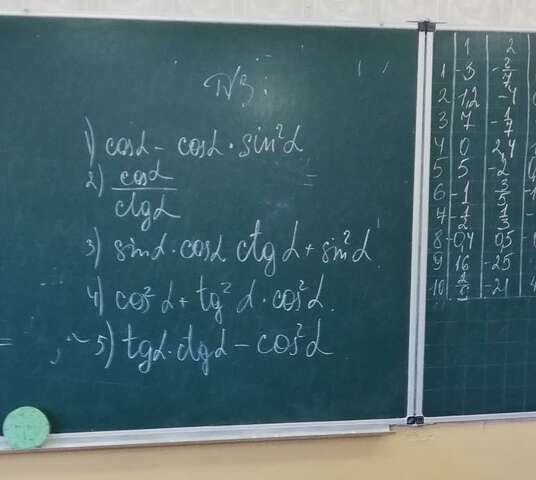 №3.
1) cosα - cosα · sin²α
2) cosα / ctgα =
3) sinα · cosα ctgα + sin²α
4) cos²α + tg²α · cos²α.
5) tgα · ctgα - cos²α
1 2
1 -5 -2/7
2 1,2 -4
3 7 -1/7
4 0 2,4
5 5 -2
6 -1 3/5
7 -1/2 1/3
8 -0,4 0,5
9 16 -25
10 -21